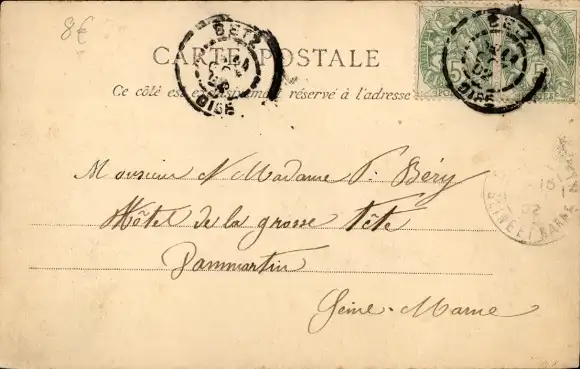 8€
BETZ
OISE
BETZ
OISE
5
POSTES
CARTE POSTALE
Ce côté est exclusivement réservé à l'adresse
Monsieur & Madame P. Béry
Hôtel de la grosse Tête
Dammartin
Seine-Marne
02
SEINE ET MARNE